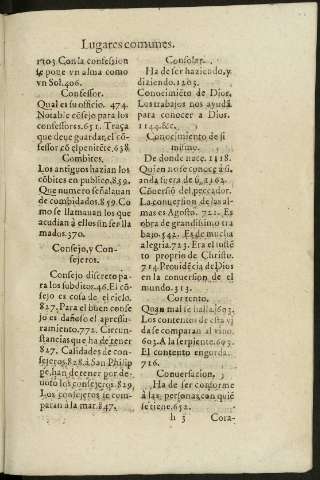 Lugares comunes.
1303 Con la confession
se pone vn alma como
vn Sol. 406.
Confessor.
Qual es su officio. 474.
Notable cõsejo para los
confessores. 651. Traça
que deue guardar, el cõ-
fessor cõ el penitẽte. 638
Combites.
Los antiguos hazian los
cõbites en publico. 859.
Que numero señalauan
de combidados. 859. Co
mo se llamauan los que
acudian à ellos sin ser lla
mados. 370.
Consejo, y Con-
sejeros.
Consejo discreto pa-
ra los subditos. 46. El cõ-
sejo es cosa de el cielo.
827. Para el buen conse
jo es dañoso el apressu-
ramiento. 772. Circun-
stancias que ha de tener
827. Calidades de con-
sejeros. 828. à San Philip
pe, han de tener por de-
uoto los consejeros. 829.
Los consejeros se com-
paran à la mar. 847.
Consolar.
Ha de ser haziendo, y
diziendo. 1263.
Conocimiẽto de Dios.
Los trabajos nos ayudã
para conocer a Dios.
1144. &c.
Conocimiento de si
mismo.
De donde nace. 1118.
Quien no se conoce à si,
anda fuera de
Cõuersiõ del peccador.
La conuersion de las al-
mas es Agosto. 722. Es
obra de grandissimo tra
bajo. 542. Es de mucha
alegria. 723. Era el susté
to proprio de Christo.
714. Prouidẽcia de Dios
en la conuersion de el
mundo. 313.
Contento.
Quan mal se halla. 603.
Los contentos de esta vi
da se comparan al vino.
603. A la serpiente. 603.
El contento engorda.
716.
Conuersacion.
Ha de ser conforme
à las personas, con quiẽ
se tiene. 652.
h 3 Cora-